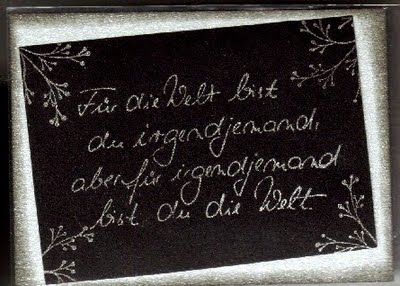 Für die Welt bist
du irgendjemand,
aber für irgendjemand
bist du die Welt.